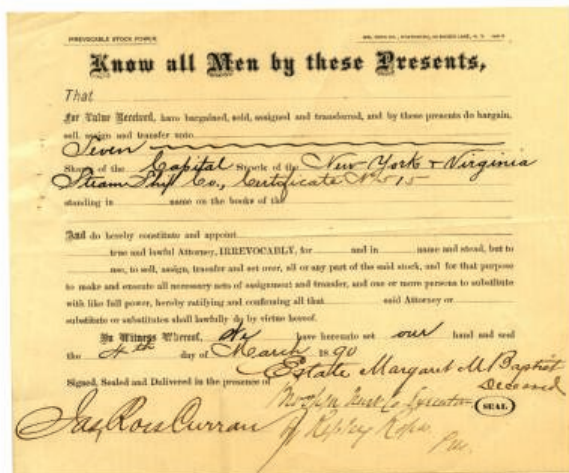 IRREVOCABLE STOCK POWER.
Know all Men by these Presents,
That
For Value Received, have bargained, sold, assigned and transferred, and by these presents do bargain,
sell, assign and transfer unto
Seven
Shares of the Capital Stock of the New York & Virginia
Steam Ship Co., Certificate No 15
standing in name on the books of the
And do hereby constitute and appoint
true and lawful Attorney, IRREVOCABLY, for and in name and stead, but to
use, to sell, assign, transfer and set over, all or any part of the said stock, and for that purpose
to make and execute all necessary acts of assignment and transfer, and one or more persons to substitute
with like full power, hereby ratifying and confirming all that said Attorney or
substitute or substitutes shall lawfully do by virtue hereof.
In Witness Whereof, We have hereunto set our hand and seal
the 4th day of March 1890
Estate Margaret M Baptist
Deceased
Signed, Sealed and Delivered in the presence of
Trust Co Executor SEAL
Jas Ross Curran
Pres.